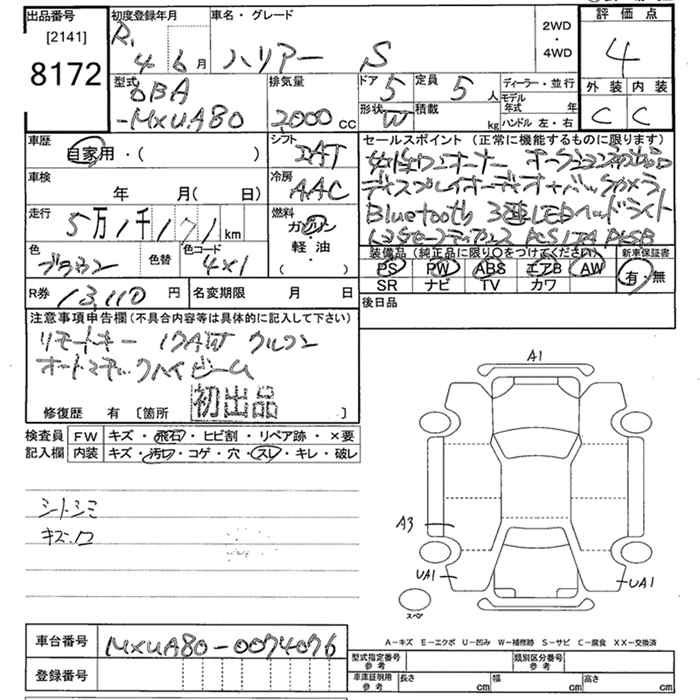 出品番号
[2141]
8172
初度登録年月
R. 4 6月
車名・グレード
ハリアー S
2WD
・
4WD
評価点
4
外装 内装
C C
型式
6BA
-MXUA80
排気量
2000 CC
ドア 5
定員 5 人
形状 W
積載 kg
ディーラー・並行
モデル年式 年
ハンドル 左・右
車歴
自家用・( )
シフト
車検
年 月(日)
冷房
AAC
走行
5万1千171 km
燃料
ガソリン
軽・油
( ・ )
色
ブラウン
色替
色コード
4X1
R券 13,110 円
名変期限 月 日
セールスポイント(正常に機能するものに限ります)
ディスプレイオーディオ+バックカメラ
Bluetooth 3連LEDヘッドライト
装備品(純正品に限り○をつけてください)
PS PW ABS エアB AW
SR ナビ TV カワ
新車保証書
有・無
後日品
注意事項申告欄(不具合内容等は具体的に記入して下さい)
リモートキー 17AW クルコン
オートマチックハイビーム
初出品
修復歴 有 [箇所 ]
検査員
記入欄
FW キズ・飛石・ヒビ割・リペア跡・×要
内装 キズ・汚れ・コゲ・穴・スレ・キレ・破レ
シートシミ
キズ.ワ
A1
A3
UA1
UA1
スペア
A-キズ E-エクボ U-凹み W-補修跡 S-サビ C-腐食 XX-交換済
車台番号
MXUA80-0074076
登録番号
型式指定番号
参考
類別区分番号
参考
車庫証明用
参考
長さ cm
幅 cm
高さ cm